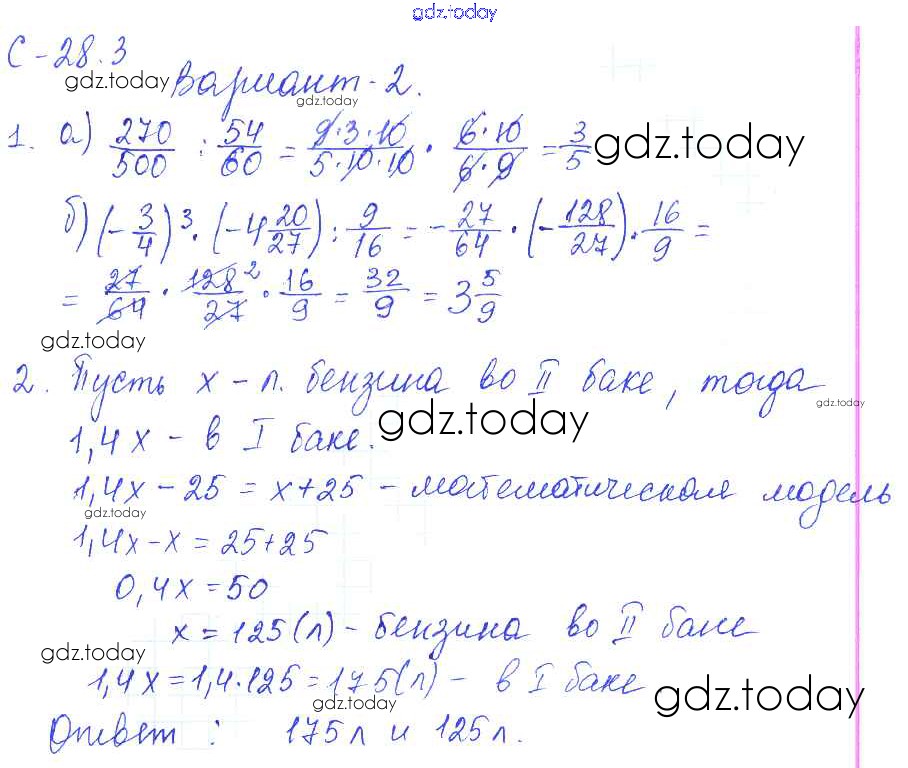 gdz.today
С-28.3
gdz.today
Вариант-2.
gdz.today
1. а) 270/500 : 54/60 = 9·3·10/5·10·10 · 6·10/6·9 = 3/5 gdz.today
б) (-3/4)³ · (-4 20/27) : 9/16 = -27/64 · (-128/27) · 16/9 =
= 27/64 · 128²/27 · 16/9 = 32/9 = 3 5/9
gdz.today
2. Пусть x - л. бензина во II баке, тогда
gdz.today
1,4x - в I баке. gdz.today
1,4x - 25 = x+25 - математическая модель
gdz.today
1,4x-x = 25+25
0,4x = 50
x = 125(л) - бензина во II баке
gdz.today
1,4x = 1,4·125 = 175(л) - в I баке
gdz.today
Ответ : 175л и 125л.